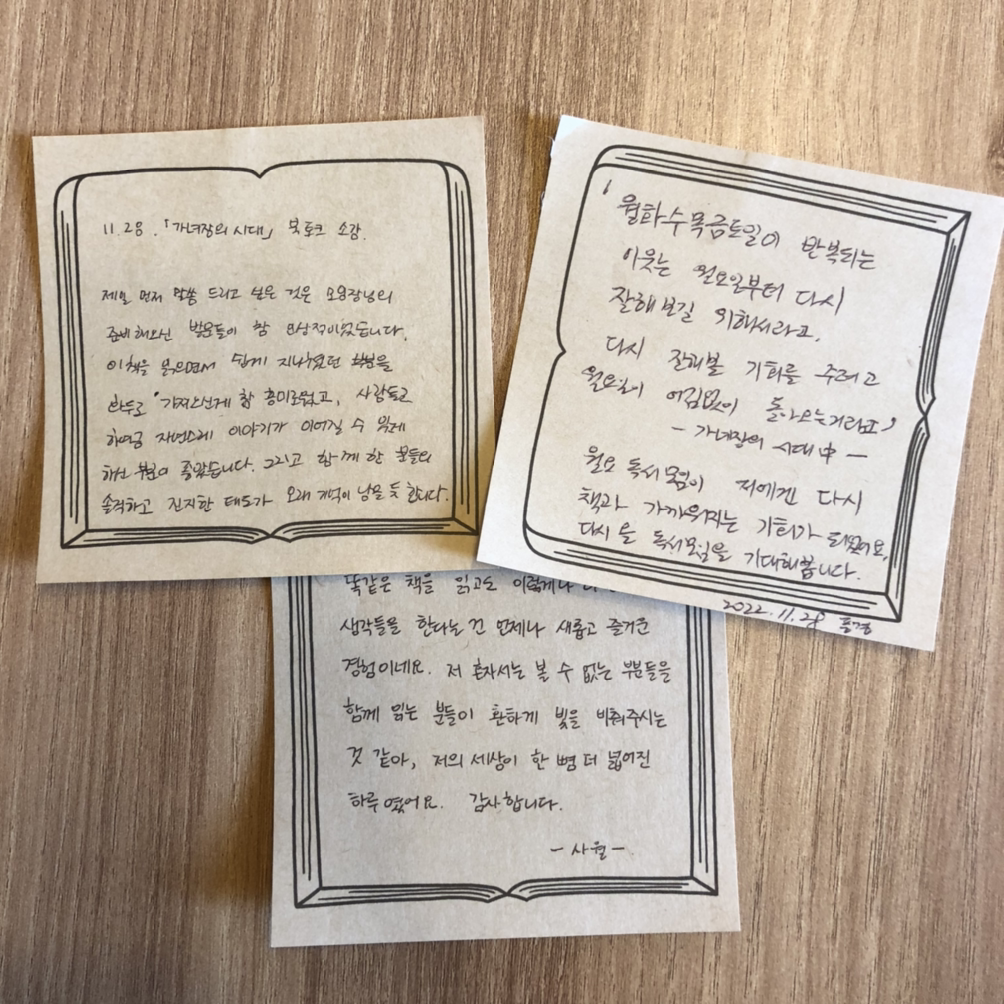 11.28. 「가녀장의 시대」 북토크 소감.
제일 먼저 말씀 드리고 싶은 것은 모임장님의
준비해오신 발문들이 참 인상적이었습니다.
이 책을 읽으면서 쉽게 지나쳤던 부분을
화두로 가져오신게 참 흥미로웠고, 사람들로
하여금 자연스레 이야기가 이어질 수 있게
하신 부분이 좋았습니다. 그리고 함께 한 분들의
솔직하고 진지한 태도가 오래 기억이 남을 듯 합니다.
'월화수목금토일이 반복되는
이웃는 월요일부터 다시
잘해보길 위해서라고.
다시 잘해볼 기회를 주려고
월요일이 어김없이 돌아오는거라고'
- 가녀장의 시대 中 -
월요 독서모임이 저에겐 다시
책과 가까워지는 기회가 되었어요.
다시 올 독서모임을 기대해봅니다.
2022.11.28
똑같은 책을 읽고도 이렇게나
생각들을 한다는 건 언제나 새롭고 즐거운
경험이네요. 저 혼자서는 볼 수 없는 부분들을
함께 읽는 분들이 환하게 빛을 비춰주시는
것 같아, 저의 세상이 한 뼘 더 넓어진
하루였어요. 감사합니다.
- 사월 -